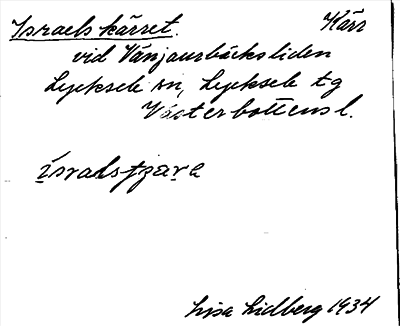 Israelskärret. Kärr
vid Vänjaurbäcksliden
Lycksele sn, Lycksele tg
Västerbottens l.
Lisa Lidberg 1934